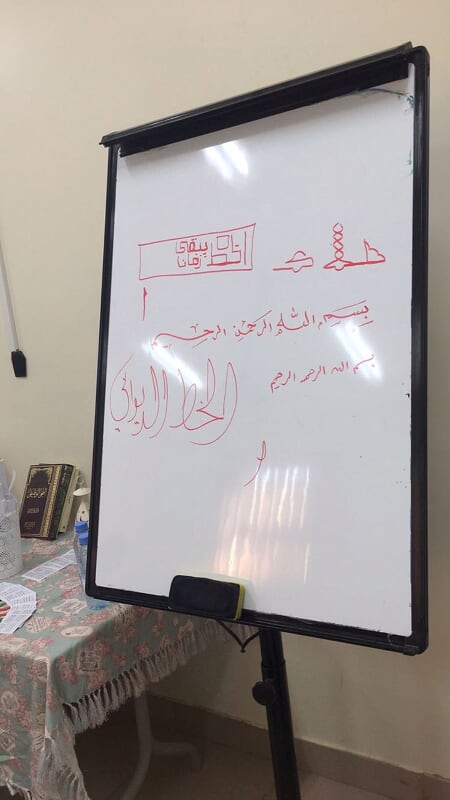 الخط يبقى زمانا
بِسْمِ الله الرحمن الرحيم
بسم الله الرحمن الرحيم
الخط الديواني